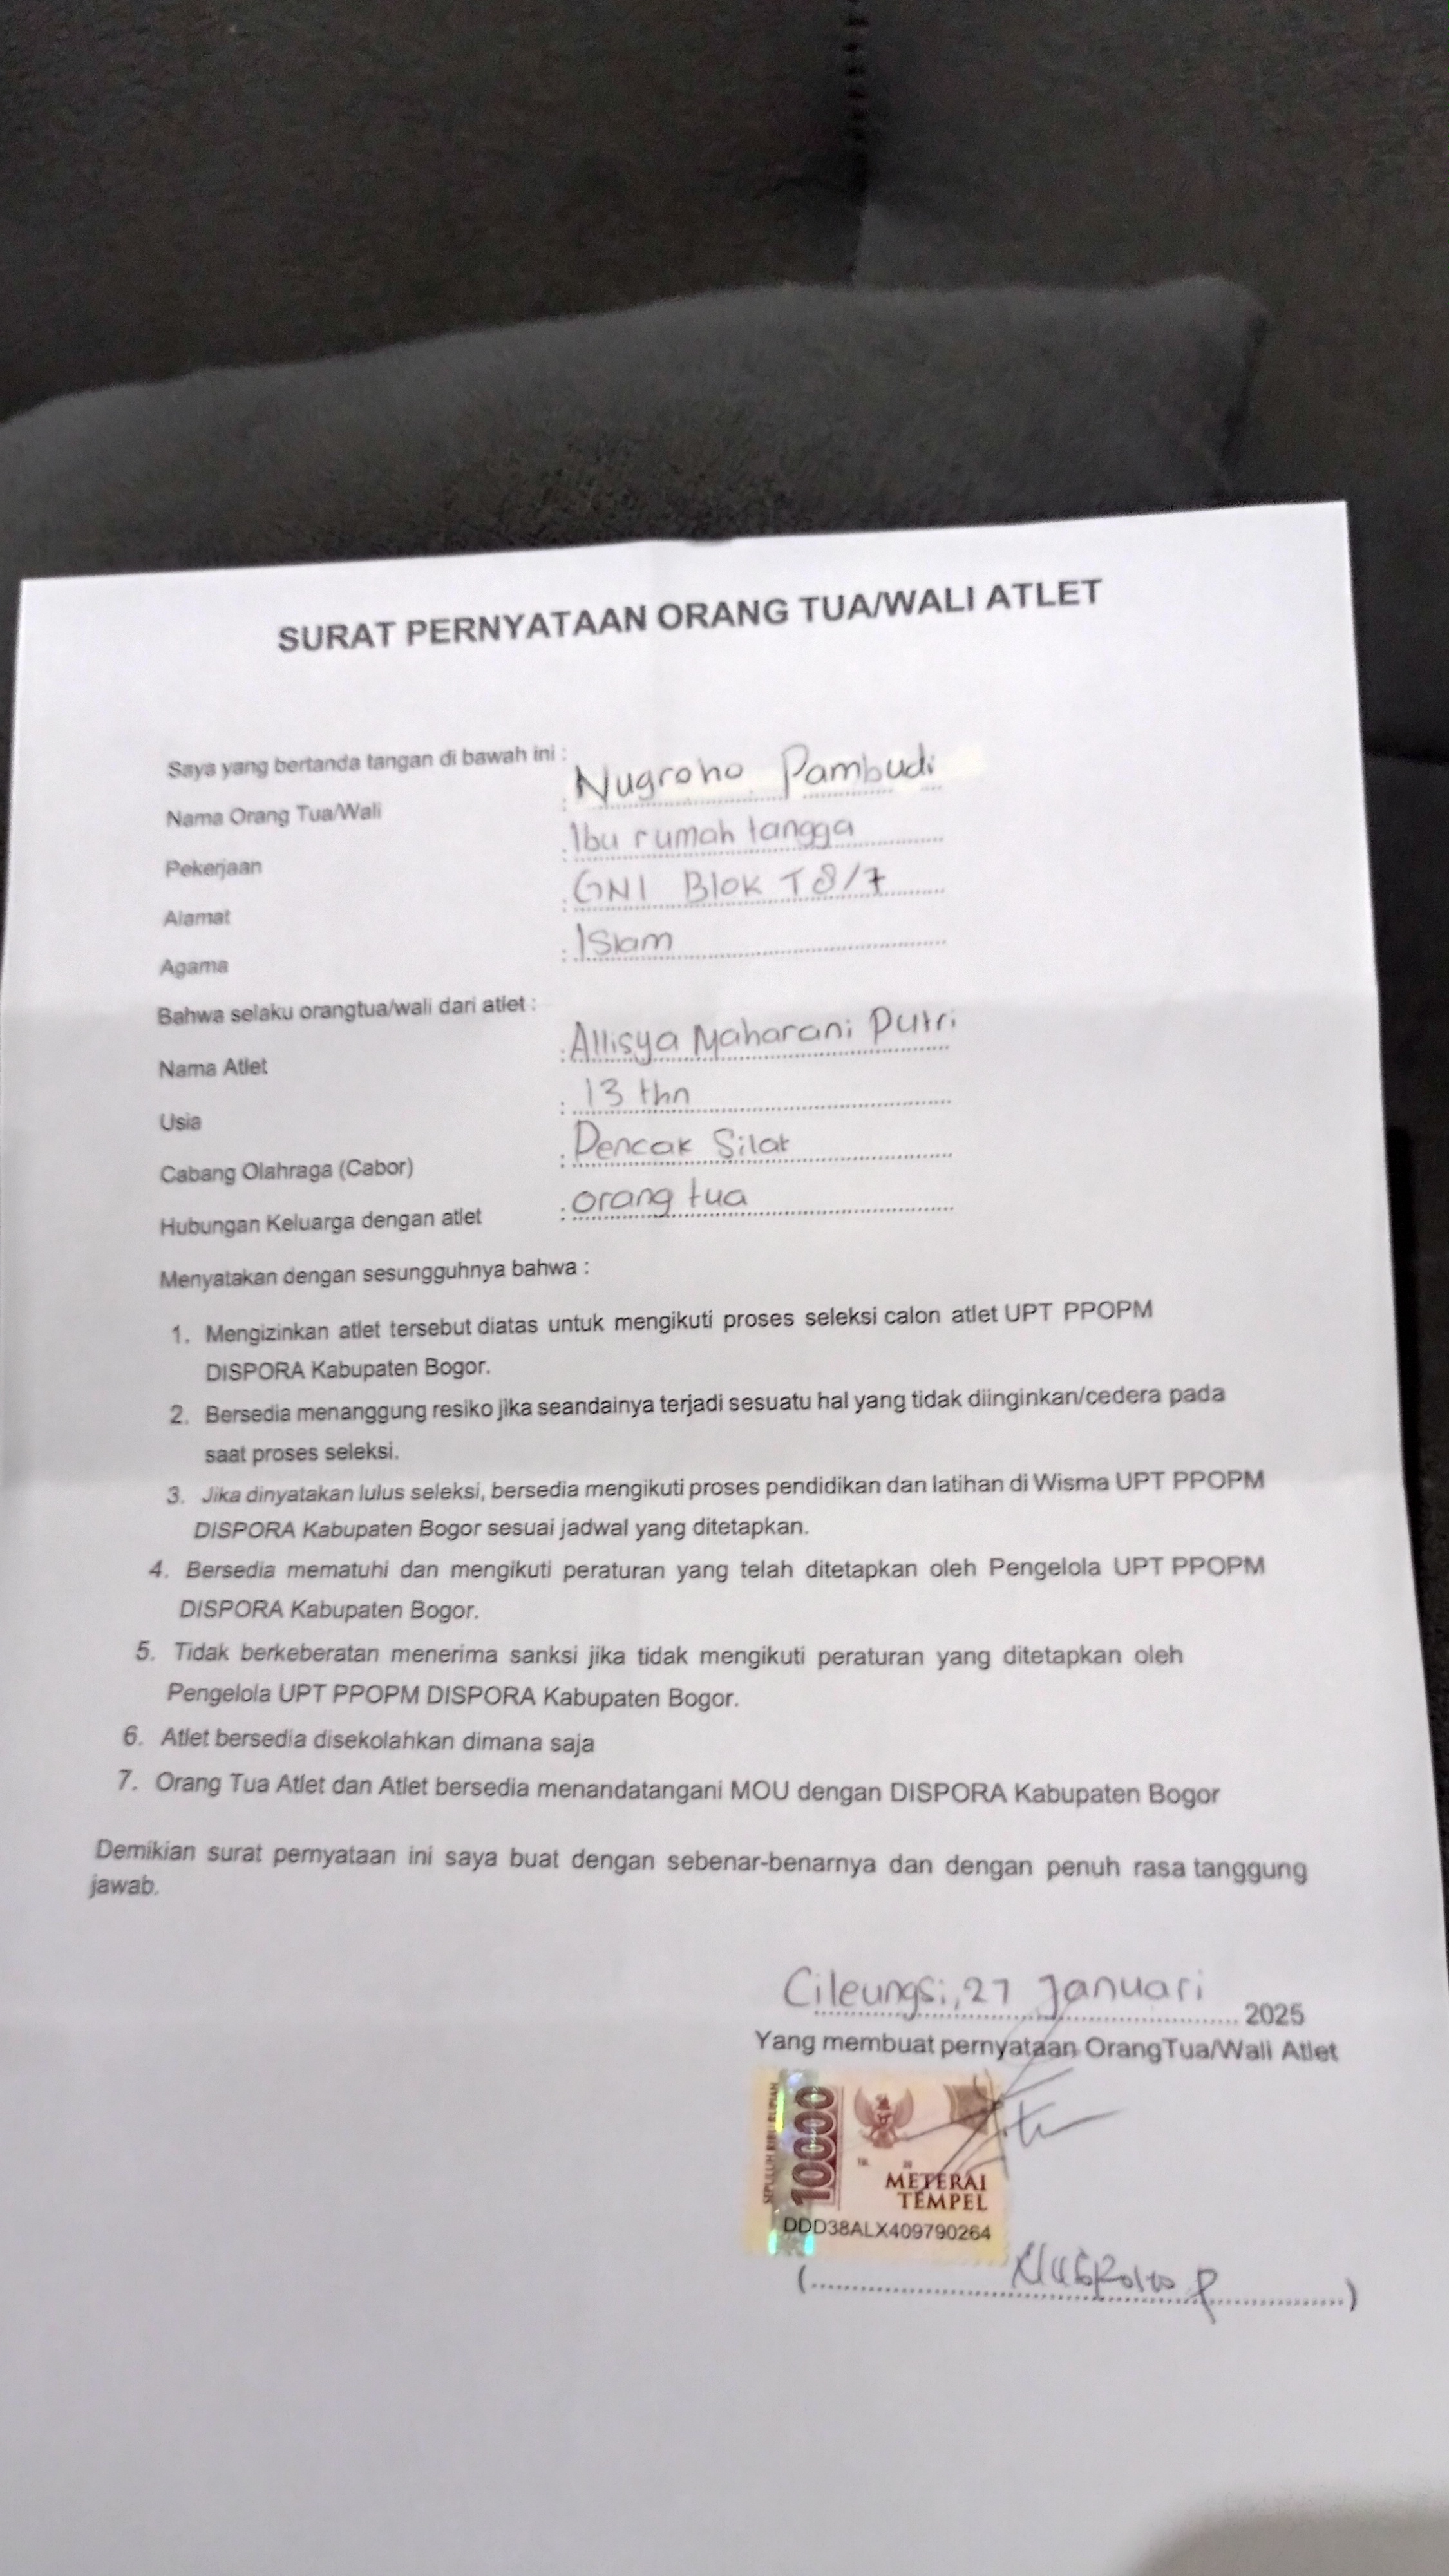 SURAT PERNYATAAN ORANG TUA/WALI ATLET
Saya yang bertanda tangan di bawah ini :
Nama Orang Tua/Wali : Nugroho Pambudi
Pekerjaan : Ibu rumah tangga
Alamat : GNI Blok T8/7
Agama : Islam
Bahwa selaku orangtua/wali dari atlet :
Nama Atlet : Allisya Maharani Putri
Usia : 13 thn
Cabang Olahraga (Cabor) : Pencak Silat
Hubungan Keluarga dengan atlet : orang tua
Menyatakan dengan sesungguhnya bahwa :
1. Mengizinkan atlet tersebut diatas untuk mengikuti proses seleksi calon atlet UPT PPOPM
DISPORA Kabupaten Bogor.
2. Bersedia menanggung resiko jika seandainya terjadi sesuatu hal yang tidak diinginkan/cedera pada
saat proses seleksi.
3. Jika dinyatakan lulus seleksi, bersedia mengikuti proses pendidikan dan latihan di Wisma UPT PPOPM
DISPORA Kabupaten Bogor sesuai jadwal yang ditetapkan.
4. Bersedia mematuhi dan mengikuti peraturan yang telah ditetapkan oleh Pengelola UPT PPOPM
DISPORA Kabupaten Bogor.
5. Tidak berkeberatan menerima sanksi jika tidak mengikuti peraturan yang ditetapkan oleh
Pengelola UPT PPOPM DISPORA Kabupaten Bogor.
6. Atlet bersedia disekolahkan dimana saja
7. Orang Tua Atlet dan Atlet bersedia menandatangani MOU dengan DISPORA Kabupaten Bogor
Demikian surat pernyataan ini saya buat dengan sebenar-benarnya dan dengan penuh rasa tanggung
jawab.
Cileungsi, 27 Januari 2025
Yang membuat pernyataan OrangTua/Wali Atlet
SEPULUH RIBU RUPIAH
10000
METERAI
TEMPEL
DDD38ALX409790264
(Nugroho P)